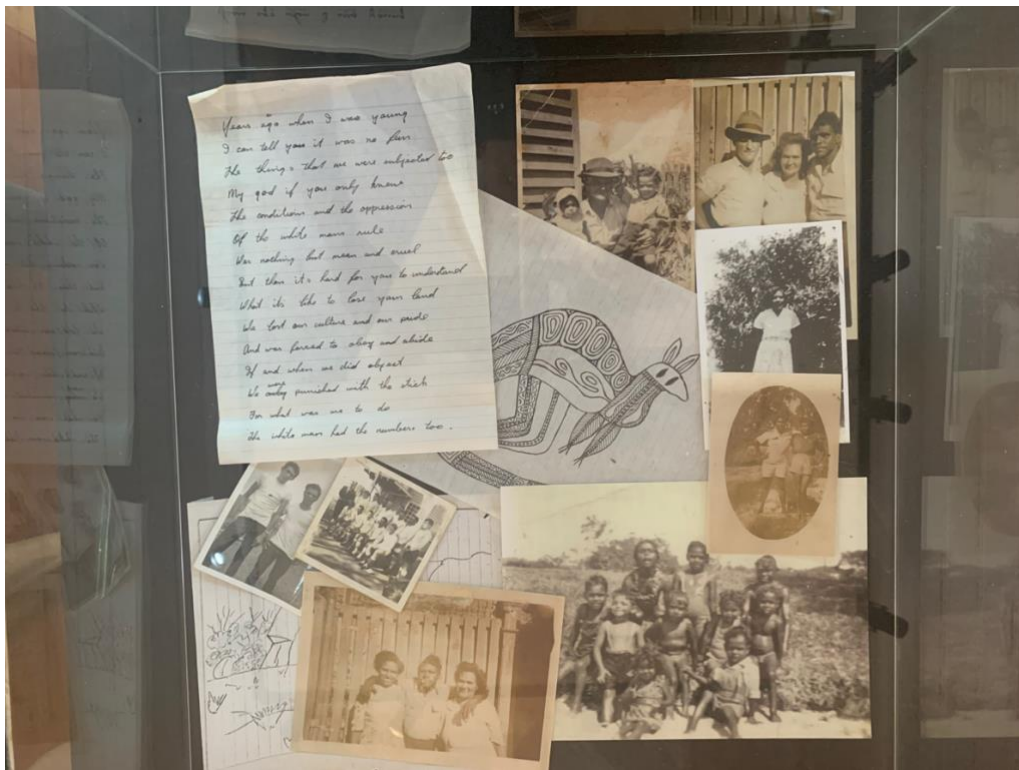 Years ago when I was young
I can tell you it was no fun
The things that we were subjected too
My god if you only knew
The conditions and the oppression
Of the white mans rule
Was nothing but mean and cruel
But then it's hard for you to understand
What it's like to lose your land
We lost our culture and our pride
And was forced to obey and abide
If and when we did object
We were punished with the stick
For what was we to do
The white man had the numbers too.